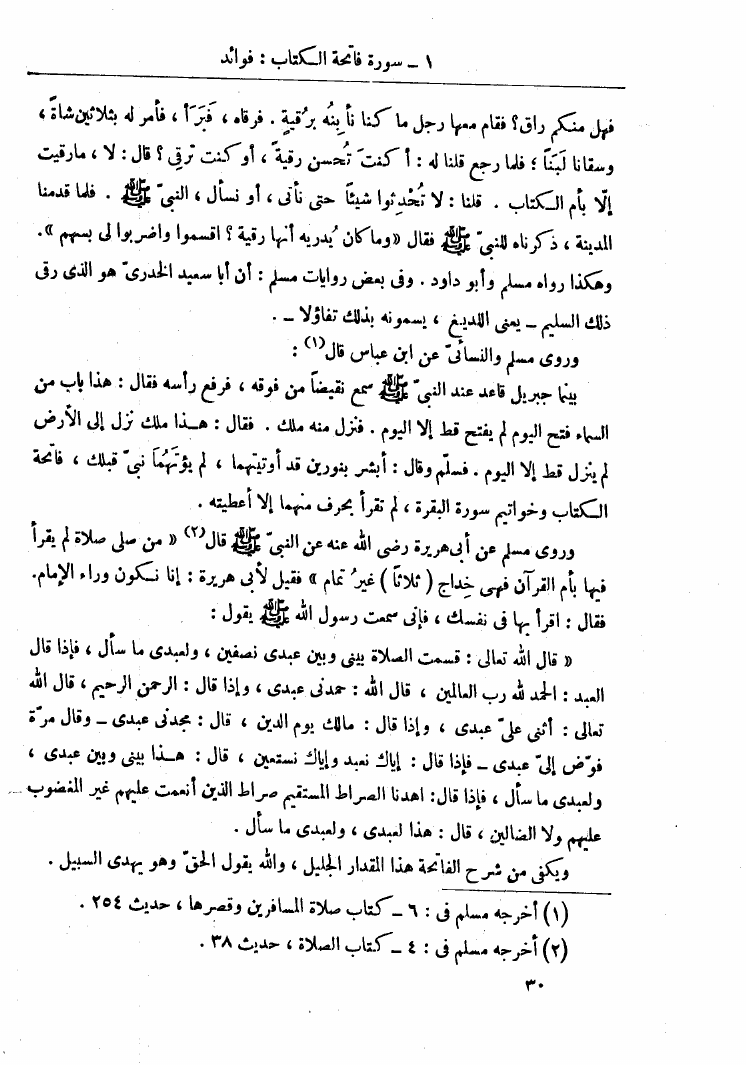 ١ – سورة فاتحة الكتاب : فوائد
فهل منكم راق؟ فقام معها رجل ما كنا نأبِنُه برُقيةٍ . فرقاه ، فَبَرَأ ، فأمر له بثلاثين شاةً ،
وسقانا لَبَناً ؛ فلما رجع قلنا له : أكنتَ تُحسن رقيةً ، أو كنت ترقِي ؟ قال : لا ، مارقيت
إلّا بأم الكتاب . قلنا : لا تُحْدِثوا شيئاً حتى نأتى ، أو نسأل ، النبيّ ﷺ . فلما قدمنا
المدينة ، ذكرناه للنبيّ ﷺ فقال «وما كان يُدريه أنها رقية ؟ اقسموا واضربوا لى بسهم ».
وهكذا رواه مسلم وأبو داود . وفى بعض روايات مسلم : أن أبا سعيد الخدرىّ هو الذى رقى
ذلك السليم – يعنى اللديغ ، يسمونه بذلك تفاؤلا – .
وروى مسلم والنسائىّ عن ابن عباس قال(١) :
بينما جبريل قاعد عند النبيّ ﷺ سمع نقيضاً من فوقه ، فرفع رأسه فقال : هذا باب من
السماء فتح اليوم لم يفتح قط إلا اليوم . فنزل منه ملك . فقال : هـذا ملك نزل إلى الأرض
لم ينزل قط إلا اليوم . فسلّم وقال : أبشر بنورين قد أوتيتهما ، لم يؤتَهُمَا نبيّ قبلك ، فاتحة
الكتاب وخواتيم سورة البقرة ، لم تقرأ بحرف منهما إلا أعطيته .
وروى مسلم عن أبى هريرة رضى الله عنه عن النبيّ ﷺ قال(٢) « من صلى صلاة لم يقرأ
فيها بأم القرآن فهى خِداج ( ثلاثاً ) غيرُ تمام » فقيل لأبى هريرة : إنا نكون وراء الإمام.
فقال : اقرأ بها فى نفسك ، فإنى سمعت رسول الله ﷺ يقول :
« قال الله تعالى : قسمت الصلاة بينى وبين عبدى نصفين ، ولعبدى ما سأل ، فإذا قال
العبد : الحمد لله رب العالمين ، قال الله : حمدنى عبدى ، وإذا قال : الرحمن الرحيم ، قال الله
تعالى : أثنى علىّ عبدى ، وإذا قال : مالك يوم الدين ، قال : مجدنى عبدى – وقال مرّة
فوّض إلىّ عبدى – فإذا قال : إياك نعبد وإياك نستعين ، قال : هـذا بينى وبين عبدى ،
ولعبدى ما سأل ، فإذا قال: اهدنا الصراط المستقيم صراط الذين أنعمت عليهم غير المغضوب
عليهم ولا الضالين ، قال : هذا لعبدى ، ولعبدى ما سأل .
ويكفى من شرح الفاتحة هذا المقدار الجليل ، والله يقول الحقّ وهو يهدى السبيل .
(١) أخرجه مسلم فى : ٦ – كتاب صلاة المسافرين وقصرها ، حديث ٢٥٤ .
(٢) أخرجه مسلم فى : ٤ – كتاب الصلاة ، حديث ٣٨ .
٣٠